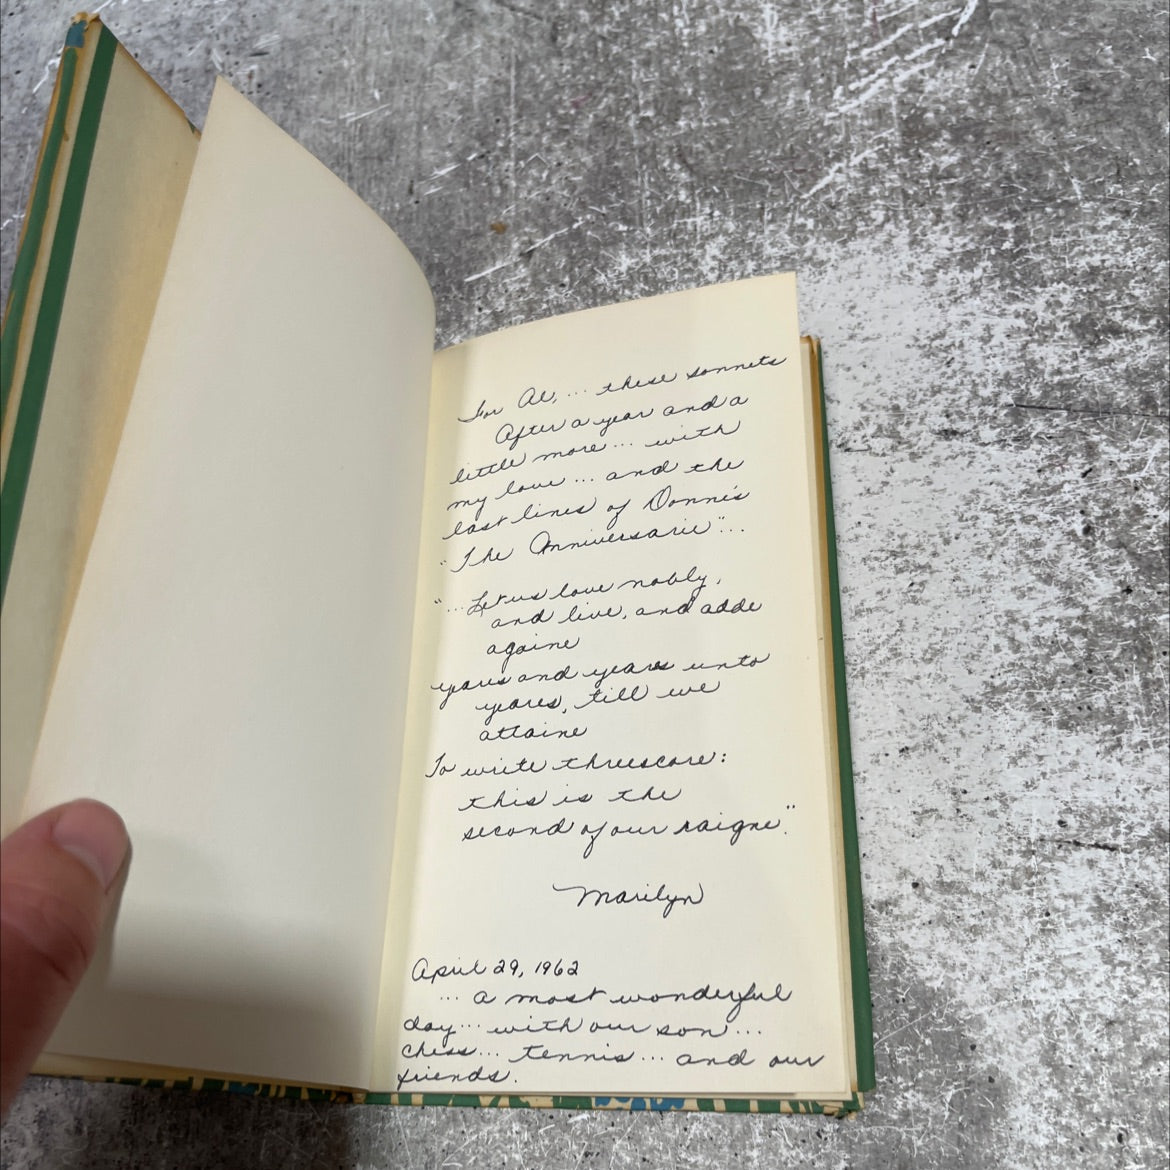 For Al, ... these sonnets
After a year and a
little more ... with
my love ... and the
last lines of Donne's
"The Anniversarie" ...
"... Let us love nobly,
and live, and adde
againe
yeares and yeares unto
yeares, till we
attaine
To write threescore:
this is the
second of our raigne".
Marilyn
April 29, 1962
... a most wonderful
day ... with our son ...
chess ... tennis ... and our
friends.